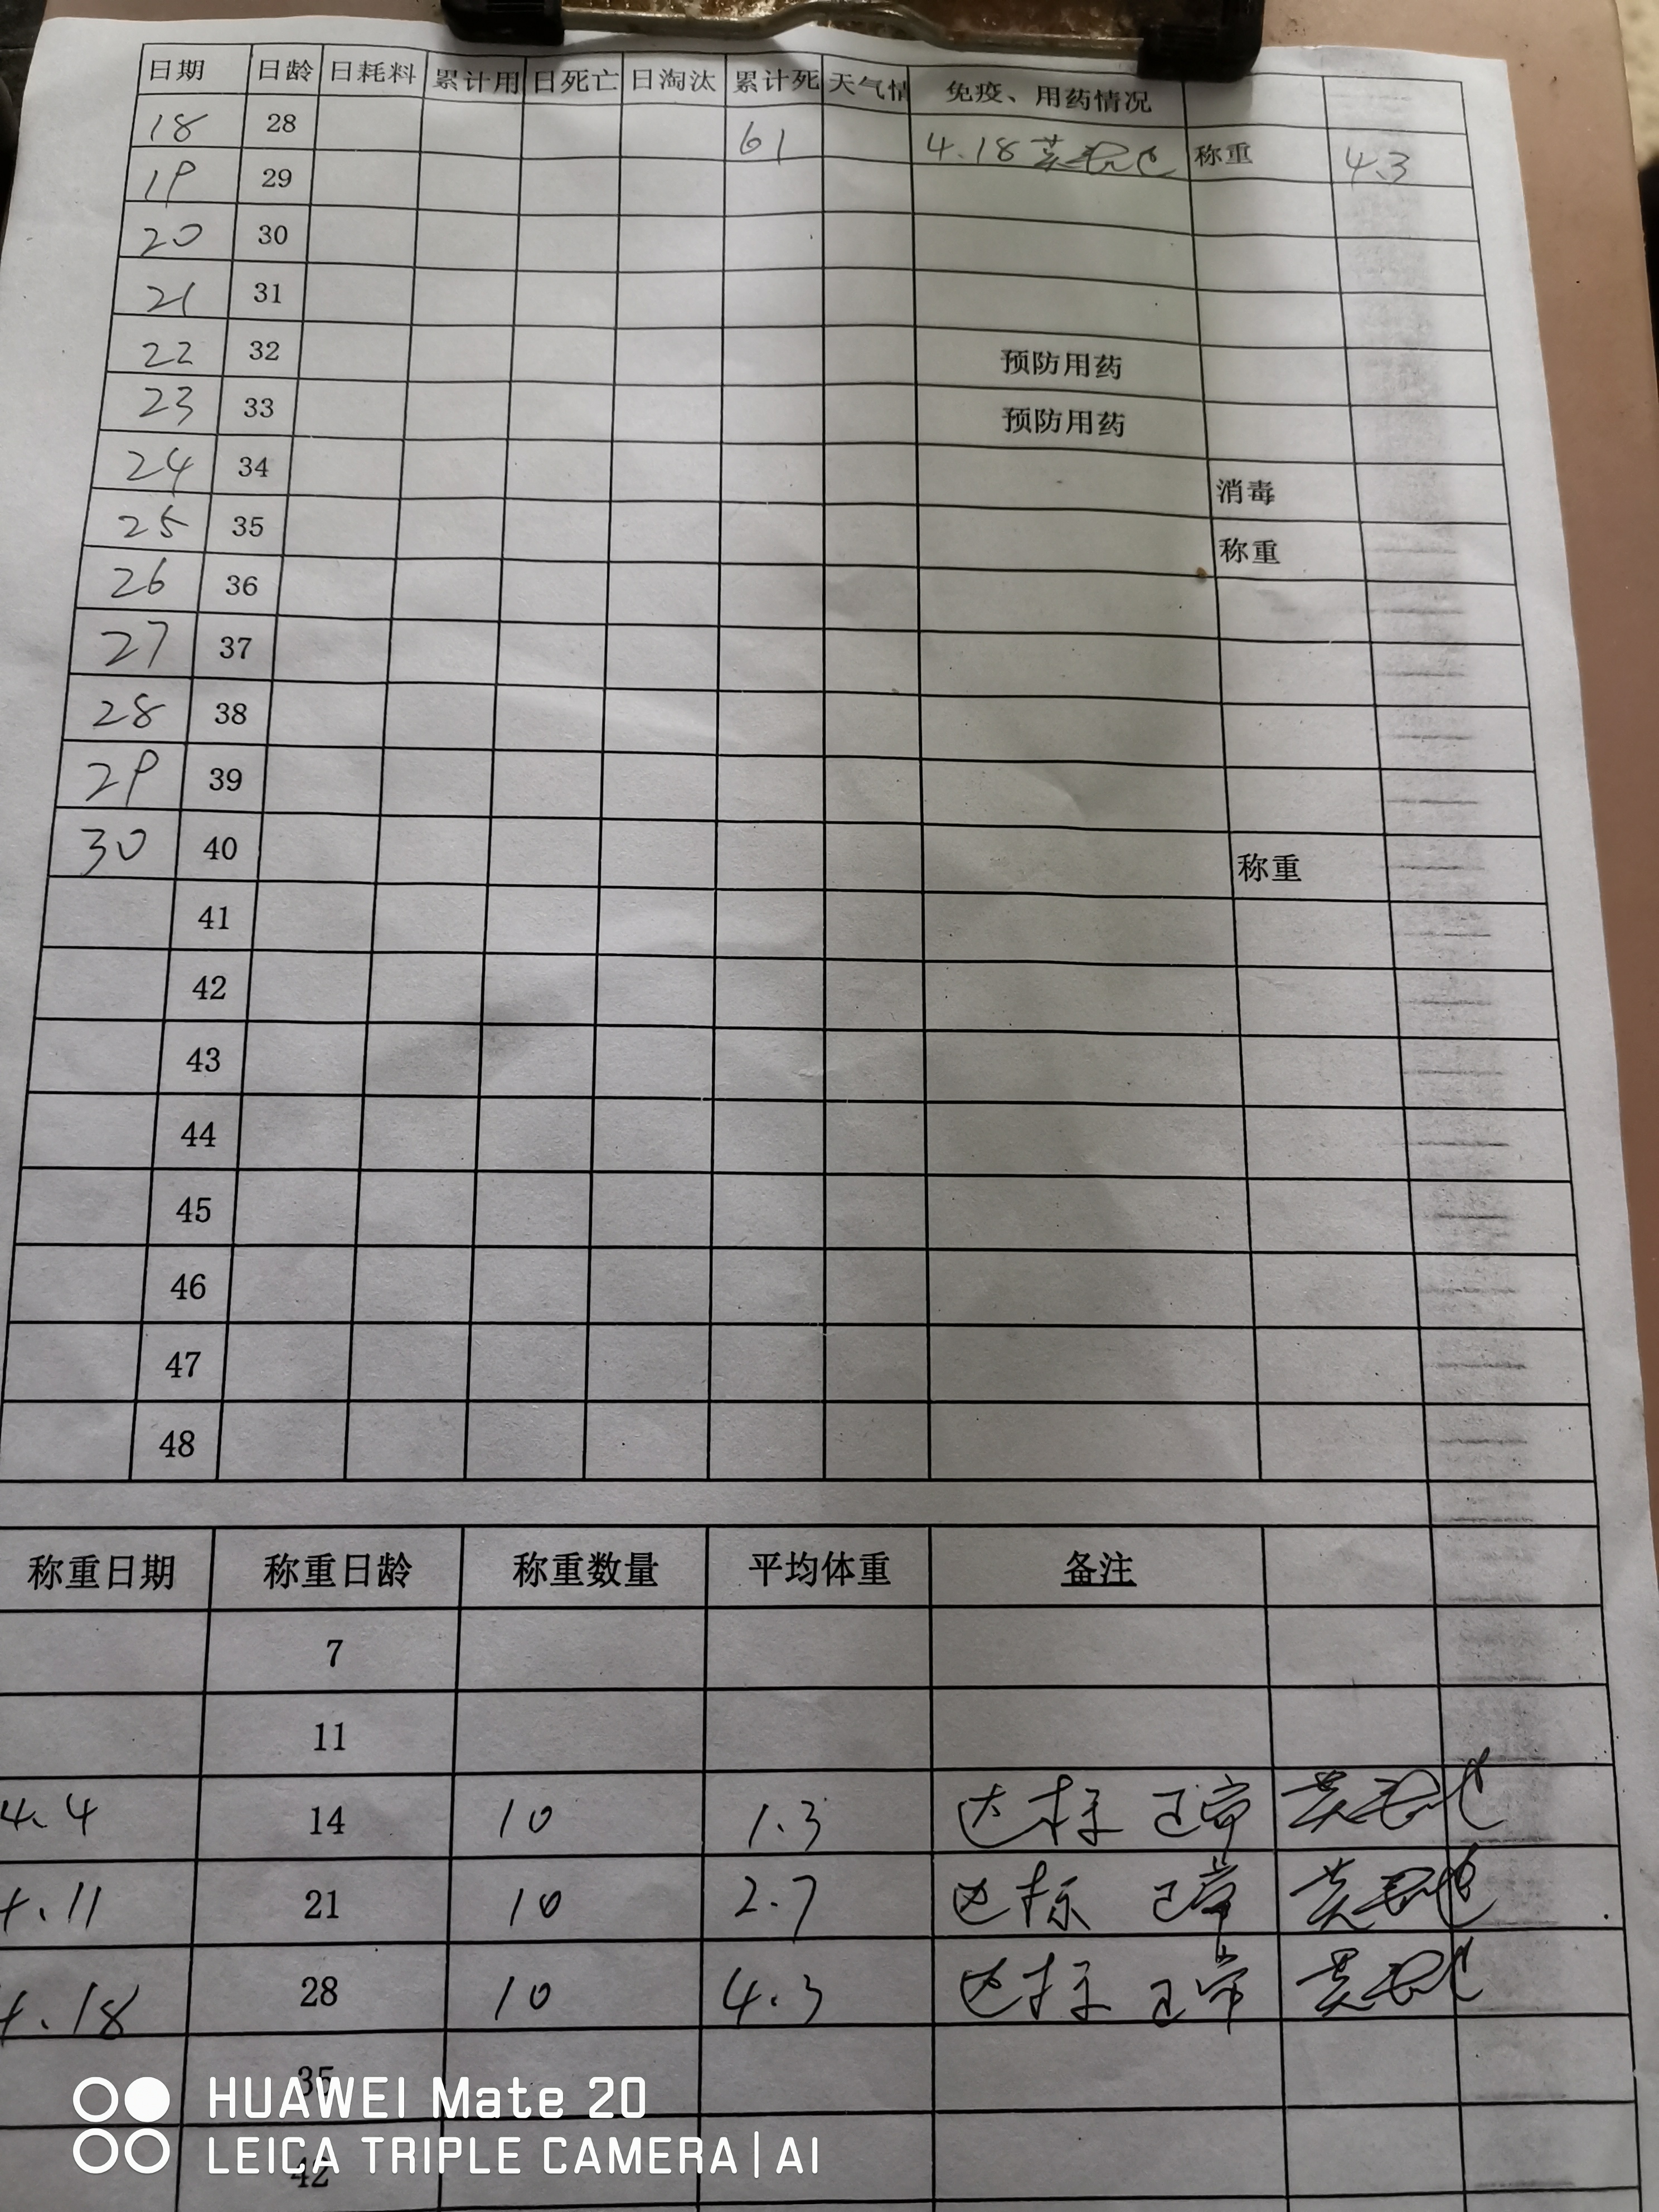 日期 日龄 日耗料 累计用 日死亡 日淘汰 累计死 天气情 免疫、用药情况
18 28 61 4.18 称重 4.3
19 29
20 30
21 31
22 32 预防用药
23 33 预防用药
24 34 消毒
25 35 称重
26 36
27 37
28 38
29 39
30 40 称重
41
42
43
44
45
46
47
48
称重日期 称重日龄 称重数量 平均体重 备注
7
11
4.4 14 10 1.3 达标 正常
4.11 21 10 2.7 达标 正常
4.18 28 10 4.3 达标 正常
35
42
HUAWEI Mate 20
LEICA TRIPLE CAMERA | AI